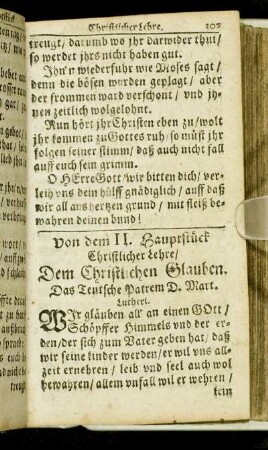 Christlicher Lehre. 307
treugt/ darumb wo jhr darwider thut/
so werdet jhrs nicht haben gut.
Jhn'n wiederfuhr wie Moses sagt/
denn die bösen worden geplagt/ aber
der frommen ward verschont/ vnd jh-
nen zeitlich wolgelohnt.
Nun hört jhr Christen eben zu/ wolt
jhr kommen zu Gottes ruh/ so müst jhr
folgen seiner stimm/ daß auch nicht fall
auff euch sein grimm.
O HErre Gott/ wir bitten dich/ ver-
leih vns dein hülff gnädiglich/ auff daß
wir all aus hertzen grund/ mit fleiß be-
wahren deinen bund!
Von dem II. Hauptstück
Christlicher Lehre/
Dem Christlichen Glauben.
Das Teutsche Patrem D. Mart.
Lutheri.
WJr gläuben all' an einen GOtt/
Schöpffer Himmels vnd der er-
den/ der sich zum Vater geben hat/ daß
wir seine kinder werden/ er wil vns all-
zeit ernehren/ leib vnd seel auch wol
bewahren/ allem vnfall wil er wehren/
kein